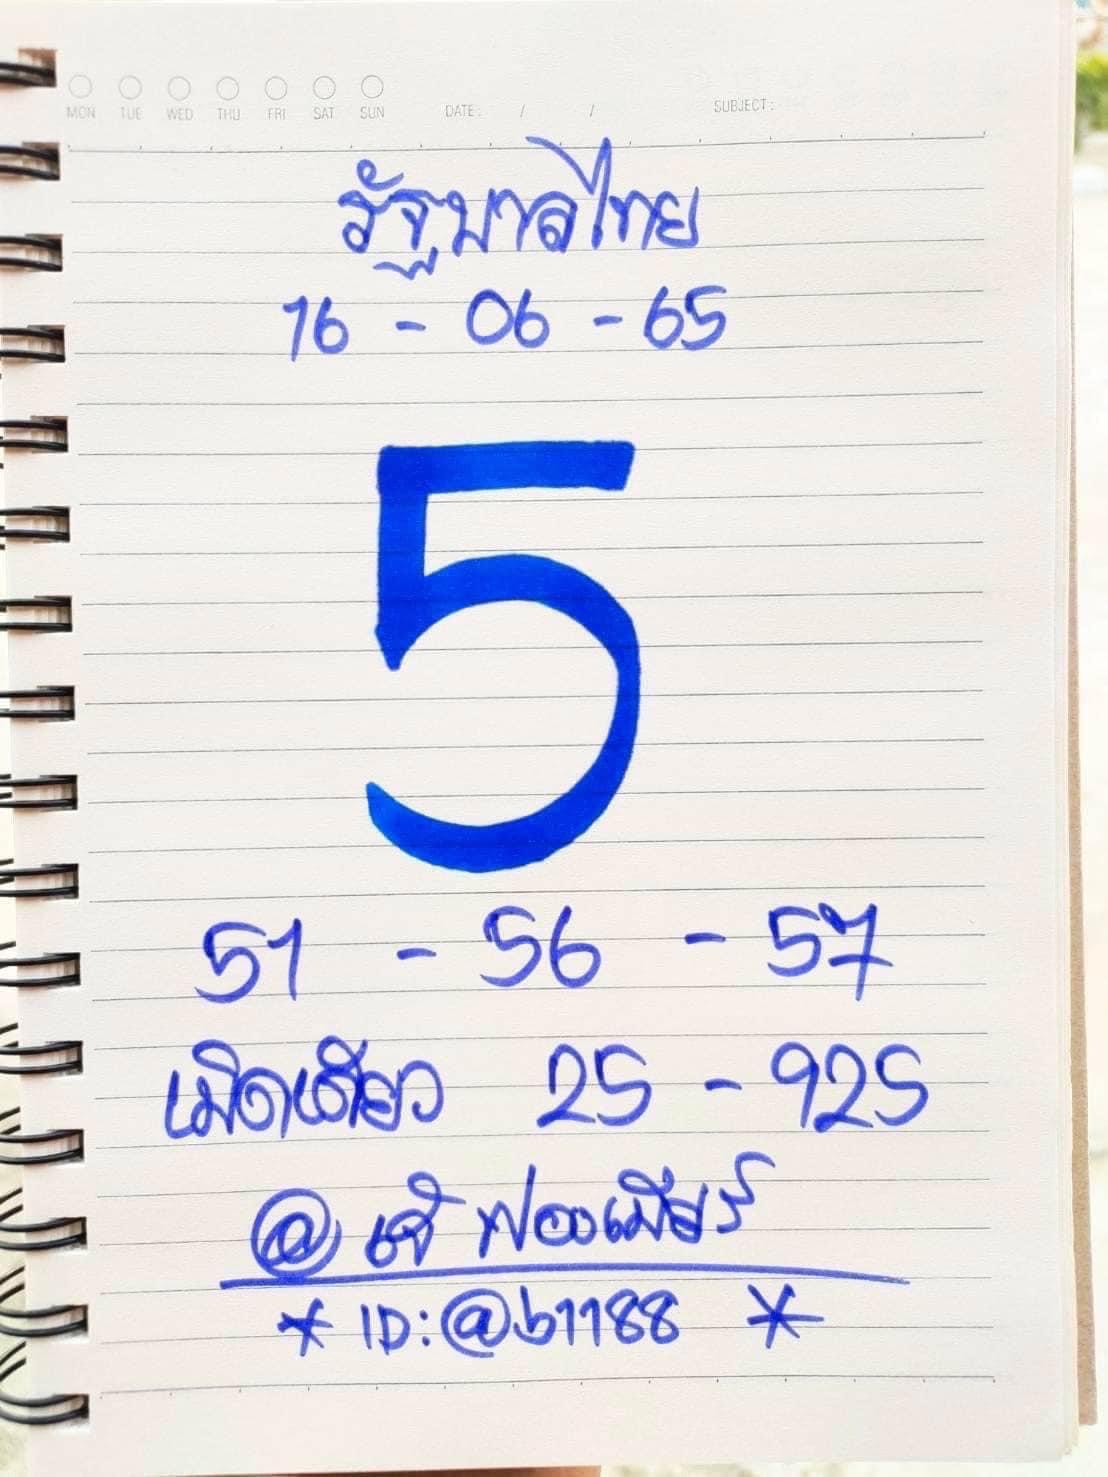 MON TUE WED THU FRI SAT SUN DATE: / / SUBJECT:
รัฐบาลไทย
16 - 06 - 65
5
51 - 56 - 57
เม็ดเดียว 25 - 925
@ เจ๊ ฟองเบียร์
* ID:@b1188 *